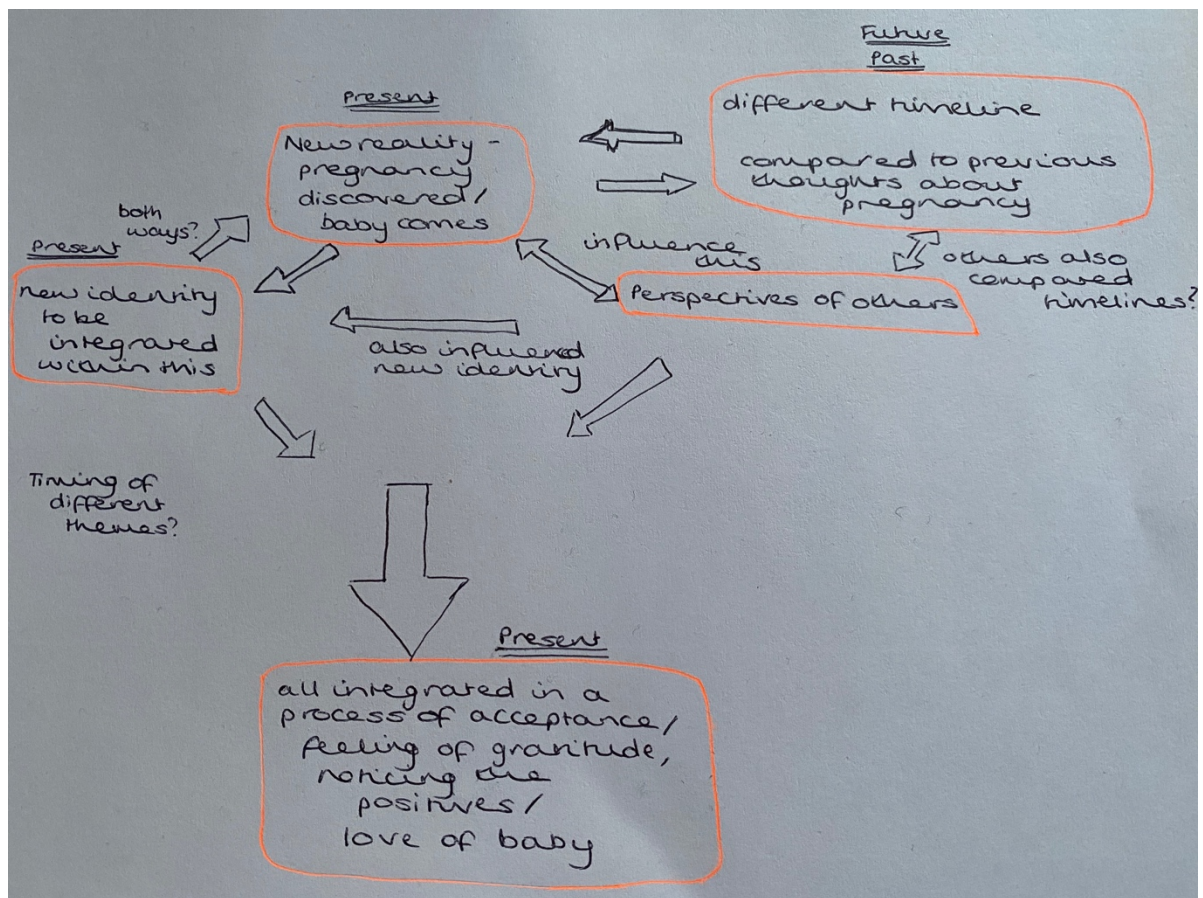 Future
Past
different timeline
compared to previous
thoughts about
pregnancy
Present
New reality -
pregnancy
discovered/
baby comes
both
ways?
Present
new identity
to be
integrated
within this
influence
this
Perspectives of others
others also
compared
timelines?
also influenced
new identity
Timing of
different
themes?
Present
all integrated in a
process of acceptance/
feeling of gratitude,
noticing the
positives/
love of baby